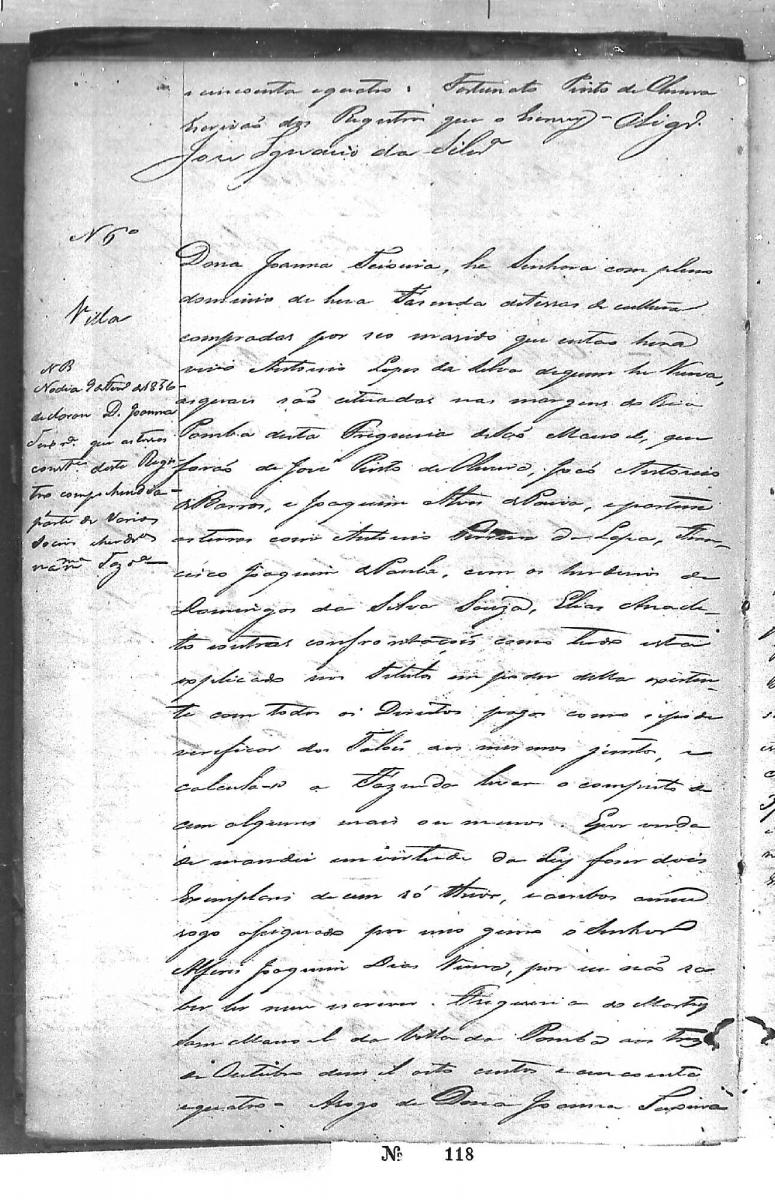 e cincoenta e quatro. Fortunato Pinto de Oliveira
Escrivaõ dos Registros que o Escrevy
José Ignacio da Silvª
Nº 6º
Villa
NB
No dia 9 de 1856
declarou D. Joanna
que as terras
deste Regis
tro comprehende a
parte de varios
socios
Dona Joanna Teixeira, he Senhora com pleno
dominio de huma Fasenda de terras de cultura
compradas por seo marido que entaõ hera
vivo Antonio Lopes da Silva de quem he Viuva,
as quais saõ cituadas nas margens do Rio
Pomba desta Freguesia de Saõ Manoel, que
foraõ de José Pinto de Oliveira, Joaõ Antonio
de Barros, e Joaquim Alves de Paiva, e partem
as terras com Antonio da Lapa, Fran-
cisco Joaquim de Paula, com os herdeiros de
Domingos da Silva Souza, Elias
to e outras confrontaçoẽs como tudo está
explicado nos Titulos em poder della
te com todos os Direitos pagos como se pode
verificar dos Taloẽs aos mesmos junto, e
calcula-se a Fazenda levar o computo de
cem alqueires mais ou menos. E por verda
de mandei em virtude da Ley faser dois
Exemplares de um só theor, e ambos a meo
rogo assignado por meo genro o Senhor
Alferes Joaquim Dias Vieira, por eu naõ sa
ber ler nem escrever. Freguesia do Martyr
Sam Manoel da Villa da Pomba aos
de Outubro de mil oito centos e cincoenta
e quatro = Arogo de Dona Joanna Teixeira
Nº 118